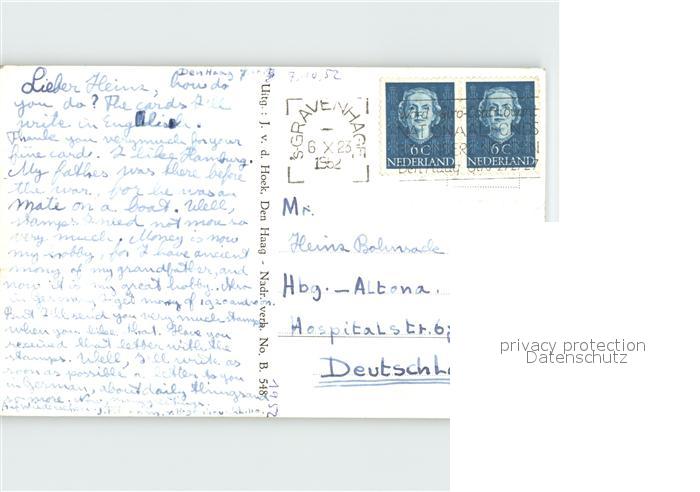 Den Haag 7.10.52
Lieber Heinz, how do
you do? The cards I'll
write in English.
Thank you very much for your
fine card. I like Hamburg.
My father was there before
the war, for he was an
mate on a boat. Well,
stamps I need not more so
very much. Money is now
my hobby, for I have ancient
mony of my grandfather, and
now it is my great hobby. Also
in Germany I get mony of 1920 and so on.
But I'll send you very much stamps
when you like that. Have you
received that letter with the
stamps. Well, I'll write as
soon as possible a letter to you
in German, about daily things and
so more. Now, many
Aufwiedersehen
Uitg.: J. v. d. Hoek, Den Haag - Nadr. verb. No. B. 548
1952
7.10.52
'S-GRAVENHAGE
6 X 23
1952
6 C
NEDERLAND
6 C
NEDERLAND
Den Haag
Mr.
Heinz Bohnsack
Hbg. - Altona.
Hospitalstr. 6
Deutschl
privacy protection
Datenschutz